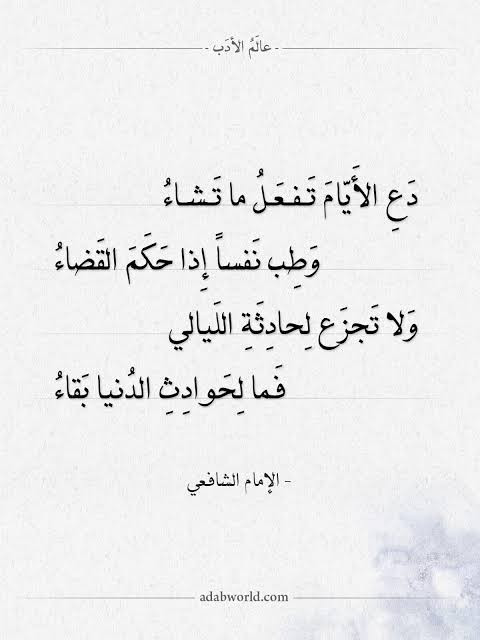 - عالَمُ الأدَب -
دَعِ الأَيّامَ تَفعَلُ ما تَشاءُ
وَطِب نَفساً إِذا حَكَمَ القَضاءُ
وَلا تَجزَع لِحادِثَةِ اللَيالي
فَما لِحَوادِثِ الدُنيا بَقاءُ
- الإمام الشافعي
adabworld.com